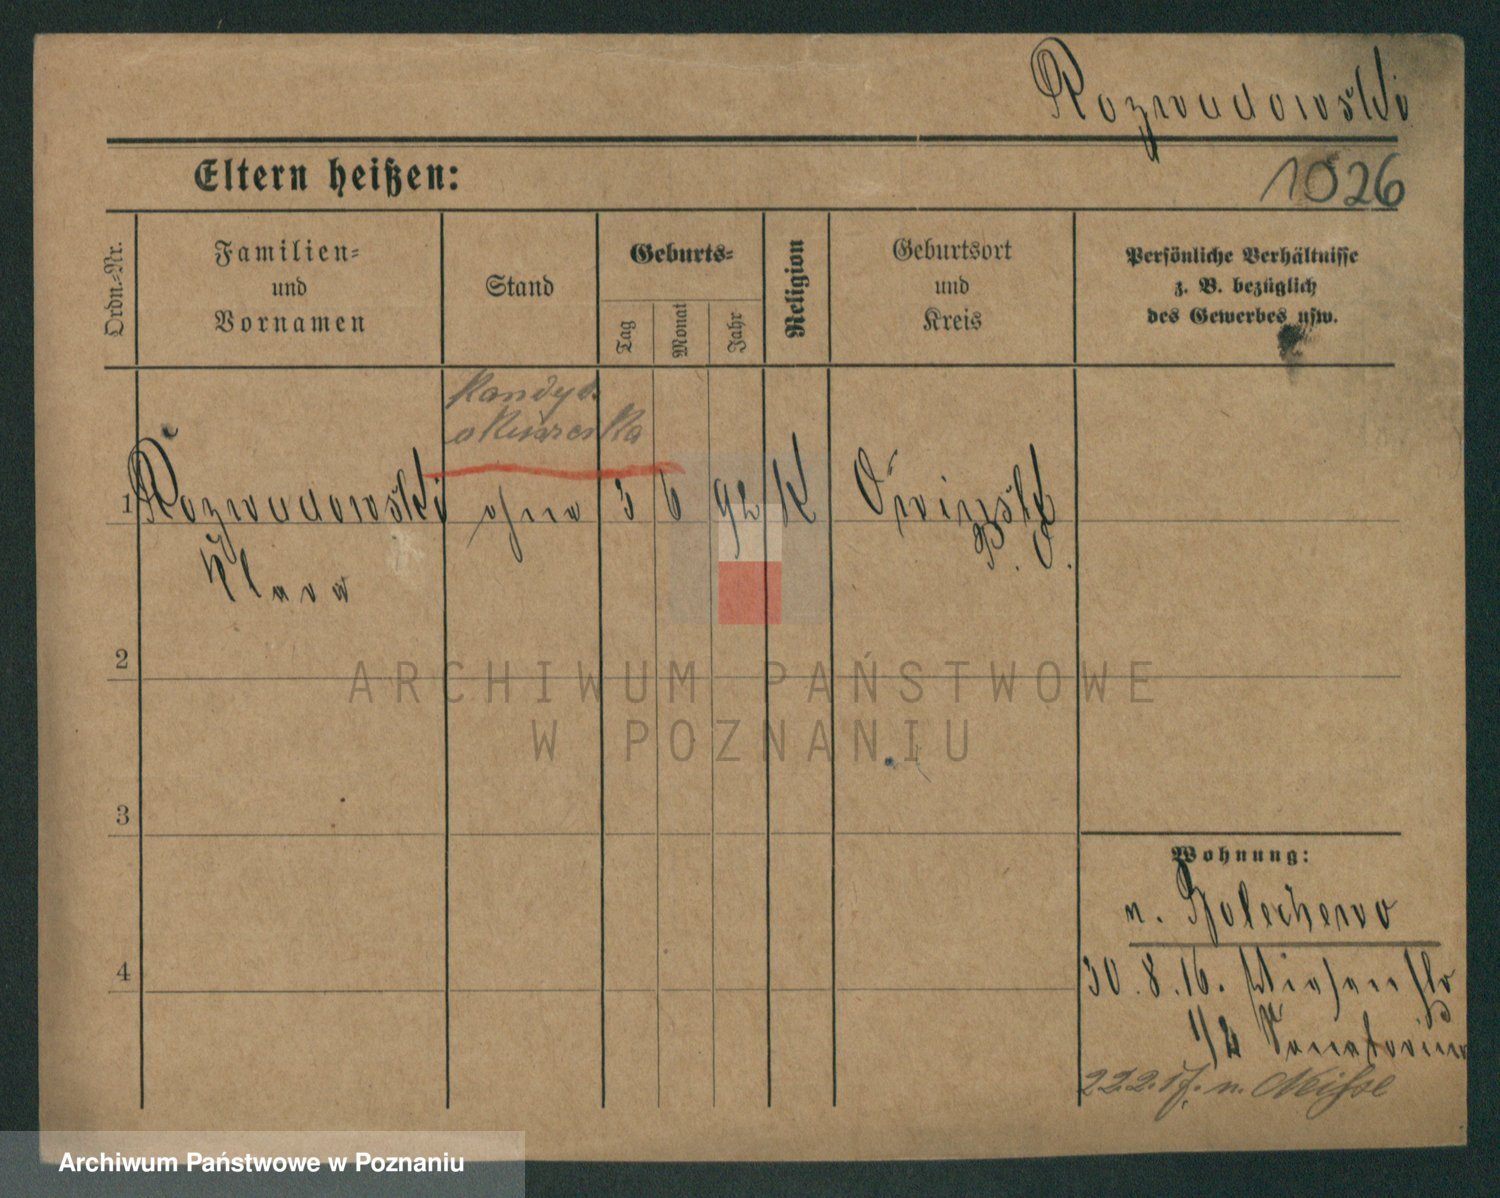 Rozwadowski
1026
Eltern heißen:
Ordn.-Nr.
Familien-
und
Vornamen
Stand
Geburts-
Tag
Monat
Jahr
Religion
Geburtsort
und
Kreis
Persönliche Verhältnisse
z. B. bezüglich
des Gewerbes usw.
1 Rozwadowski ohne 3 6 92 K Owinsk
P. O.
Klara
2
ARCHIWUM PAŃSTWOWE
W POZNANIU
3
Wohnung:
n. Bolechowo
4
30.8.16.
1/2 Sanatorium
22.2.17. n. Neisse
Archiwum Państwowe w Poznaniu